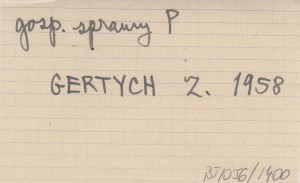 gosp. sprawy P
GERTYCH Z. 1958
BJ/OJG/1400